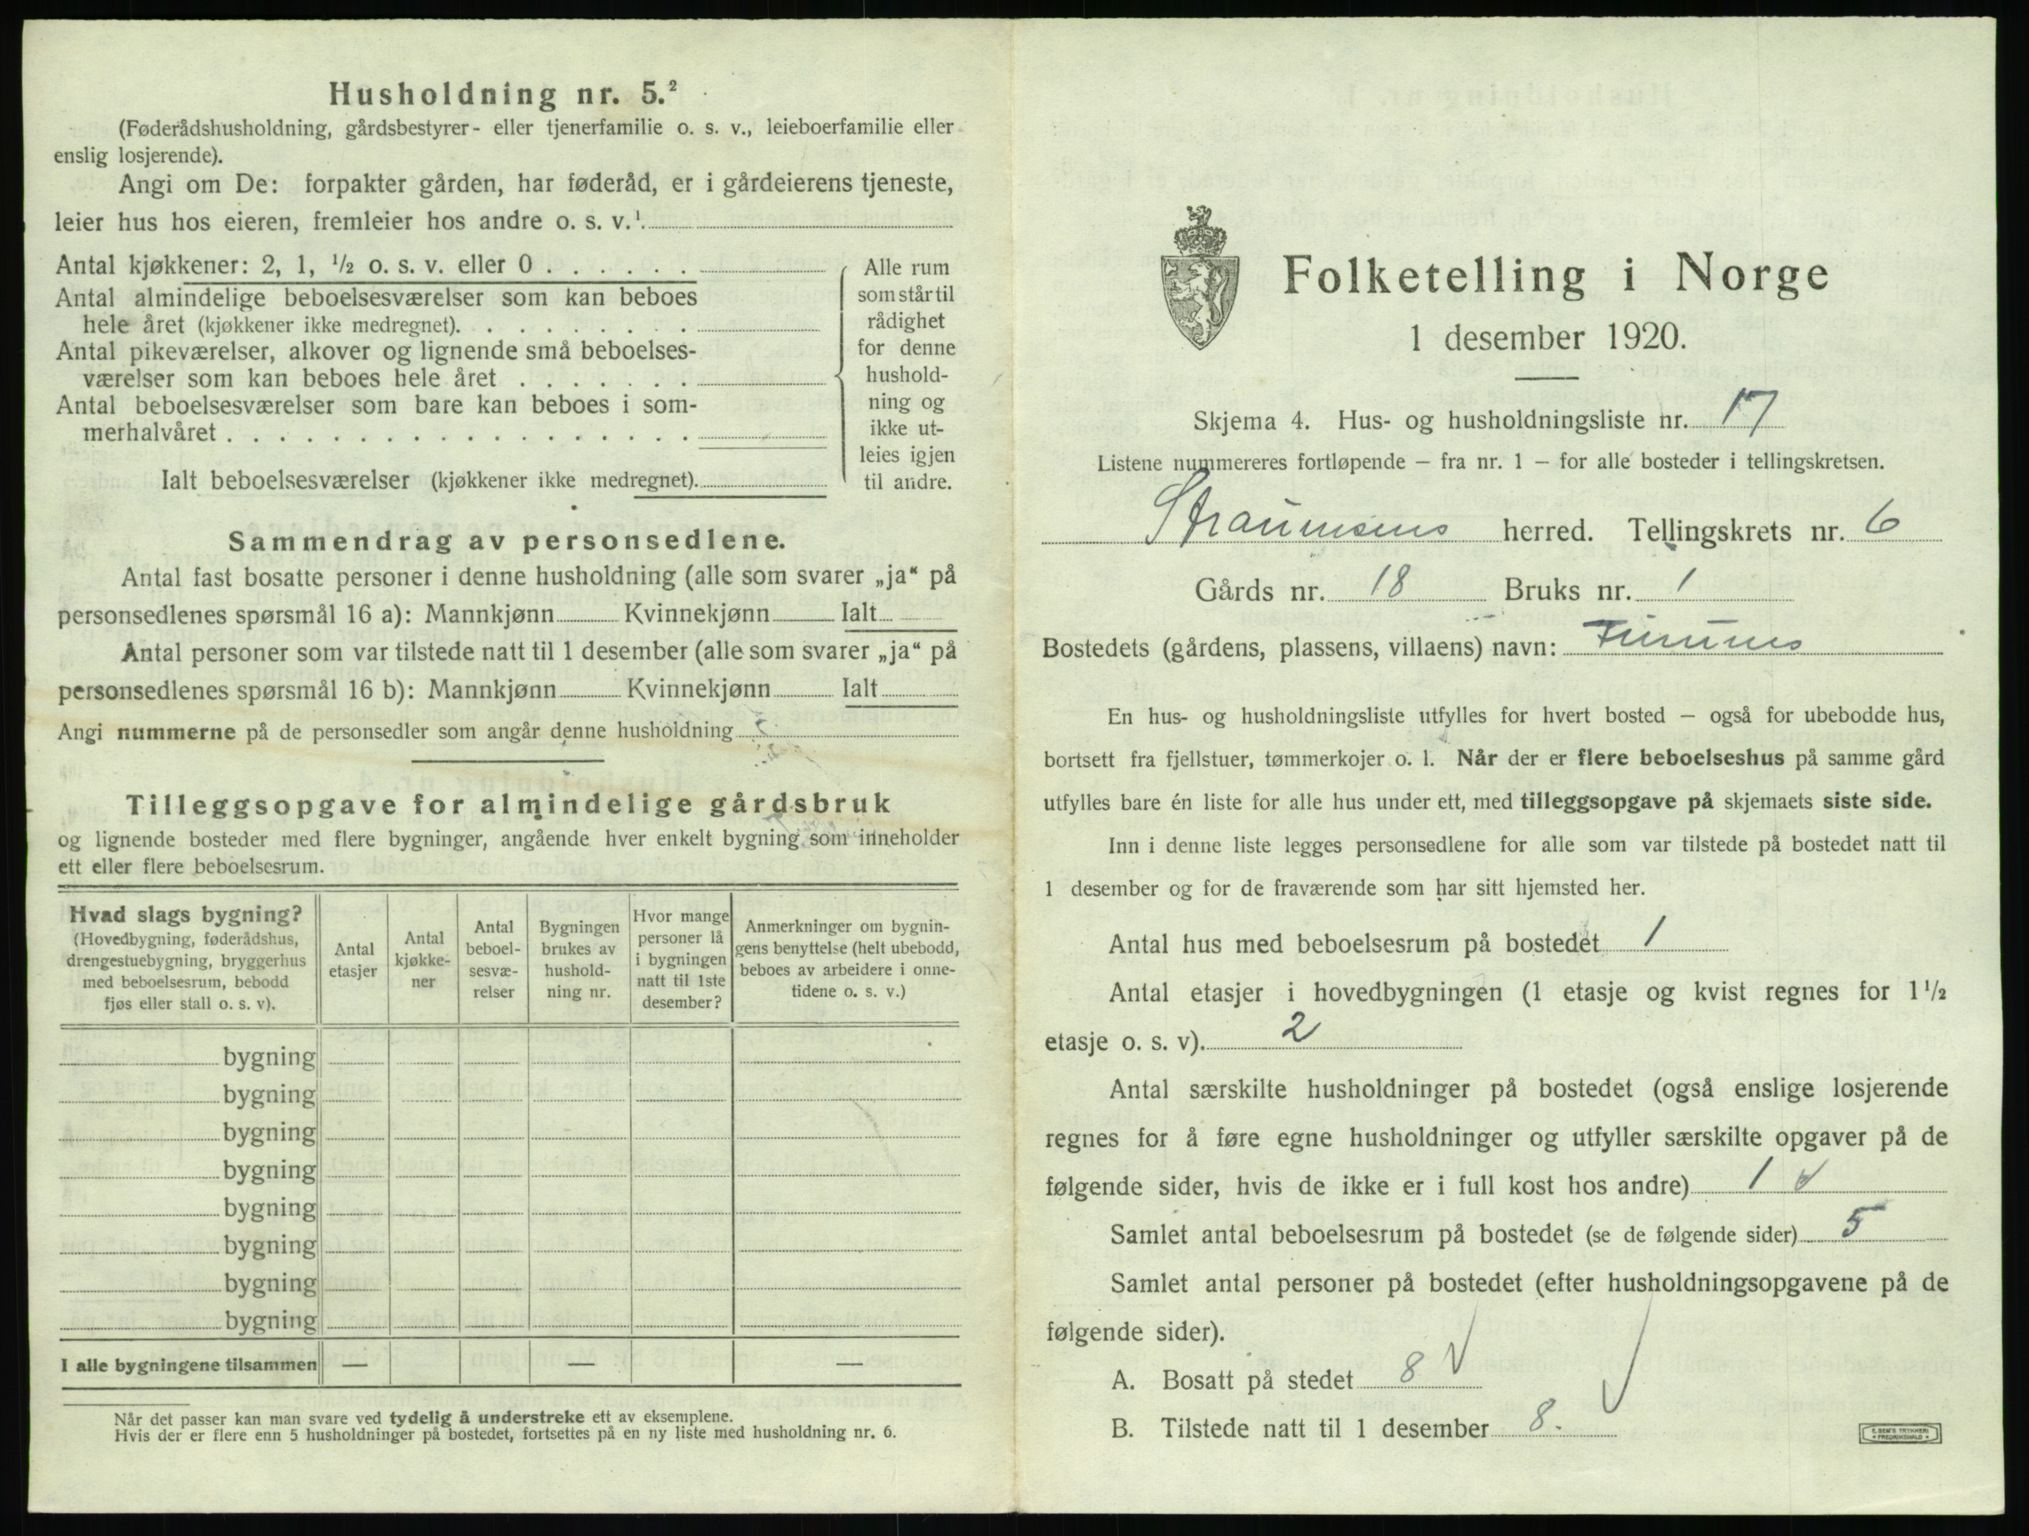 Husholdning nr. 5.²
(Føderådshusholdning, gårdsbestyrer- eller tjenerfamilie o. s. v., leieboerfamilie eller
enslig losjerende).
Angi om De: forpakter gården, har føderåd, er i gårdeierens tjeneste,
leier hus hos eieren, fremleier hos andre o. s. v.¹
Antal kjøkkener: 2, 1, ½ o. s. v. eller 0 . . . . . .
Antal almindelige beboelsesværelser som kan beboes
hele året (kjøkkener ikke medregnet). . . . . . . . .
Antal pikeværelser, alkover og lignende små beboelses-
værelser som kan beboes hele året . . . . . . .
Antal beboelsesværelser som bare kan beboes i som-
merhalvåret . . . . . . . . . . . . . . . . . .
Ialt beboelsesværelser (kjøkkener ikke medregnet).
Alle rum
som står til
rådighet
for denne
hushold-
ning og
ikke ut-
leies igjen
til andre.
Sammendrag av personsedlene.
Antal fast bosatte personer i denne husholdning (alle som svarer „ja“ på
personsedlenes spørsmål 16 a): Mannkjønn Kvinnekjønn Ialt
Antal personer som var tilstede natt til 1 desember (alle som svarer „ja“ på
personsedlenes spørsmål 16 b): Mannkjønn Kvinnekjønn Ialt
Angi nummerne på de personsedler som angår denne husholdning
Tilleggsopgave for almindelige gårdsbruk
og lignende bosteder med flere bygninger, angående hver enkelt bygning som inneholder
ett eller flere beboelsesrum.
Hvad slags bygning?
(Hovedbygning, føderådshus,
drengestuebygning, bryggerhus
med beboelsesrum, bebodd
fjøs eller stall o. s. v).
Antal
etasjer
Antal
kjøkke-
ner
Antal
beboel-
sesvæ-
relser
Bygningen
brukes av
hushold-
ning nr.
Hvor mange
personer lå
i bygningen
natt til 1ste
desember?
Anmerkninger om bygnin-
gens benyttelse (helt ubebodd,
beboes av arbeidere i onne-
tidene o. s. v.)
bygning
bygning
bygning
bygning
bygning
bygning
bygning
bygning
I alle bygningene tilsammen — — —
Når det passer kan man svare ved tydelig å understreke ett av eksemplene.
Hvis der er flere enn 5 husholdninger på bostedet, fortsettes på en ny liste med husholdning nr. 6.
Folketelling i Norge
1 desember 1920.
Skjema 4. Hus- og husholdningsliste nr. 17
Listene nummereres fortløpende — fra nr. 1 — for alle bosteder i tellingskretsen.
Straumsens herred. Tellingskrets nr. 6
Gårds nr. 18 Bruks nr. 1
Bostedets (gårdens, plassens, villaens) navn:
En hus- og husholdningsliste utfylles for hvert bosted — også for ubebodde hus,
bortsett fra fjellstuer, tømmerkojer o. l. Når der er flere beboelseshus på samme gård
utfylles bare én liste for alle hus under ett, med tilleggsopgave på skjemaets siste side.
Inn i denne liste legges personsedlene for alle som var tilstede på bostedet natt til
1 desember og for de fraværende som har sitt hjemsted her.
Antal hus med beboelsesrum på bostedet 1
Antal etasjer i hovedbygningen (1 etasje og kvist regnes for 1½
etasje o. s. v). 2
Antal særskilte husholdninger på bostedet (også enslige losjerende
regnes for å føre egne husholdninger og utfyller særskilte opgaver på de
følgende sider, hvis de ikke er i full kost hos andre) 1
Samlet antal beboelsesrum på bostedet (se de følgende sider) 5
Samlet antal personer på bostedet (efter husholdningsopgavene på de
følgende sider).
A. Bosatt på stedet 8
B. Tilstede natt til 1 desember 8.
E. SEM'S TRYKKERI
FREDRIKSHALD